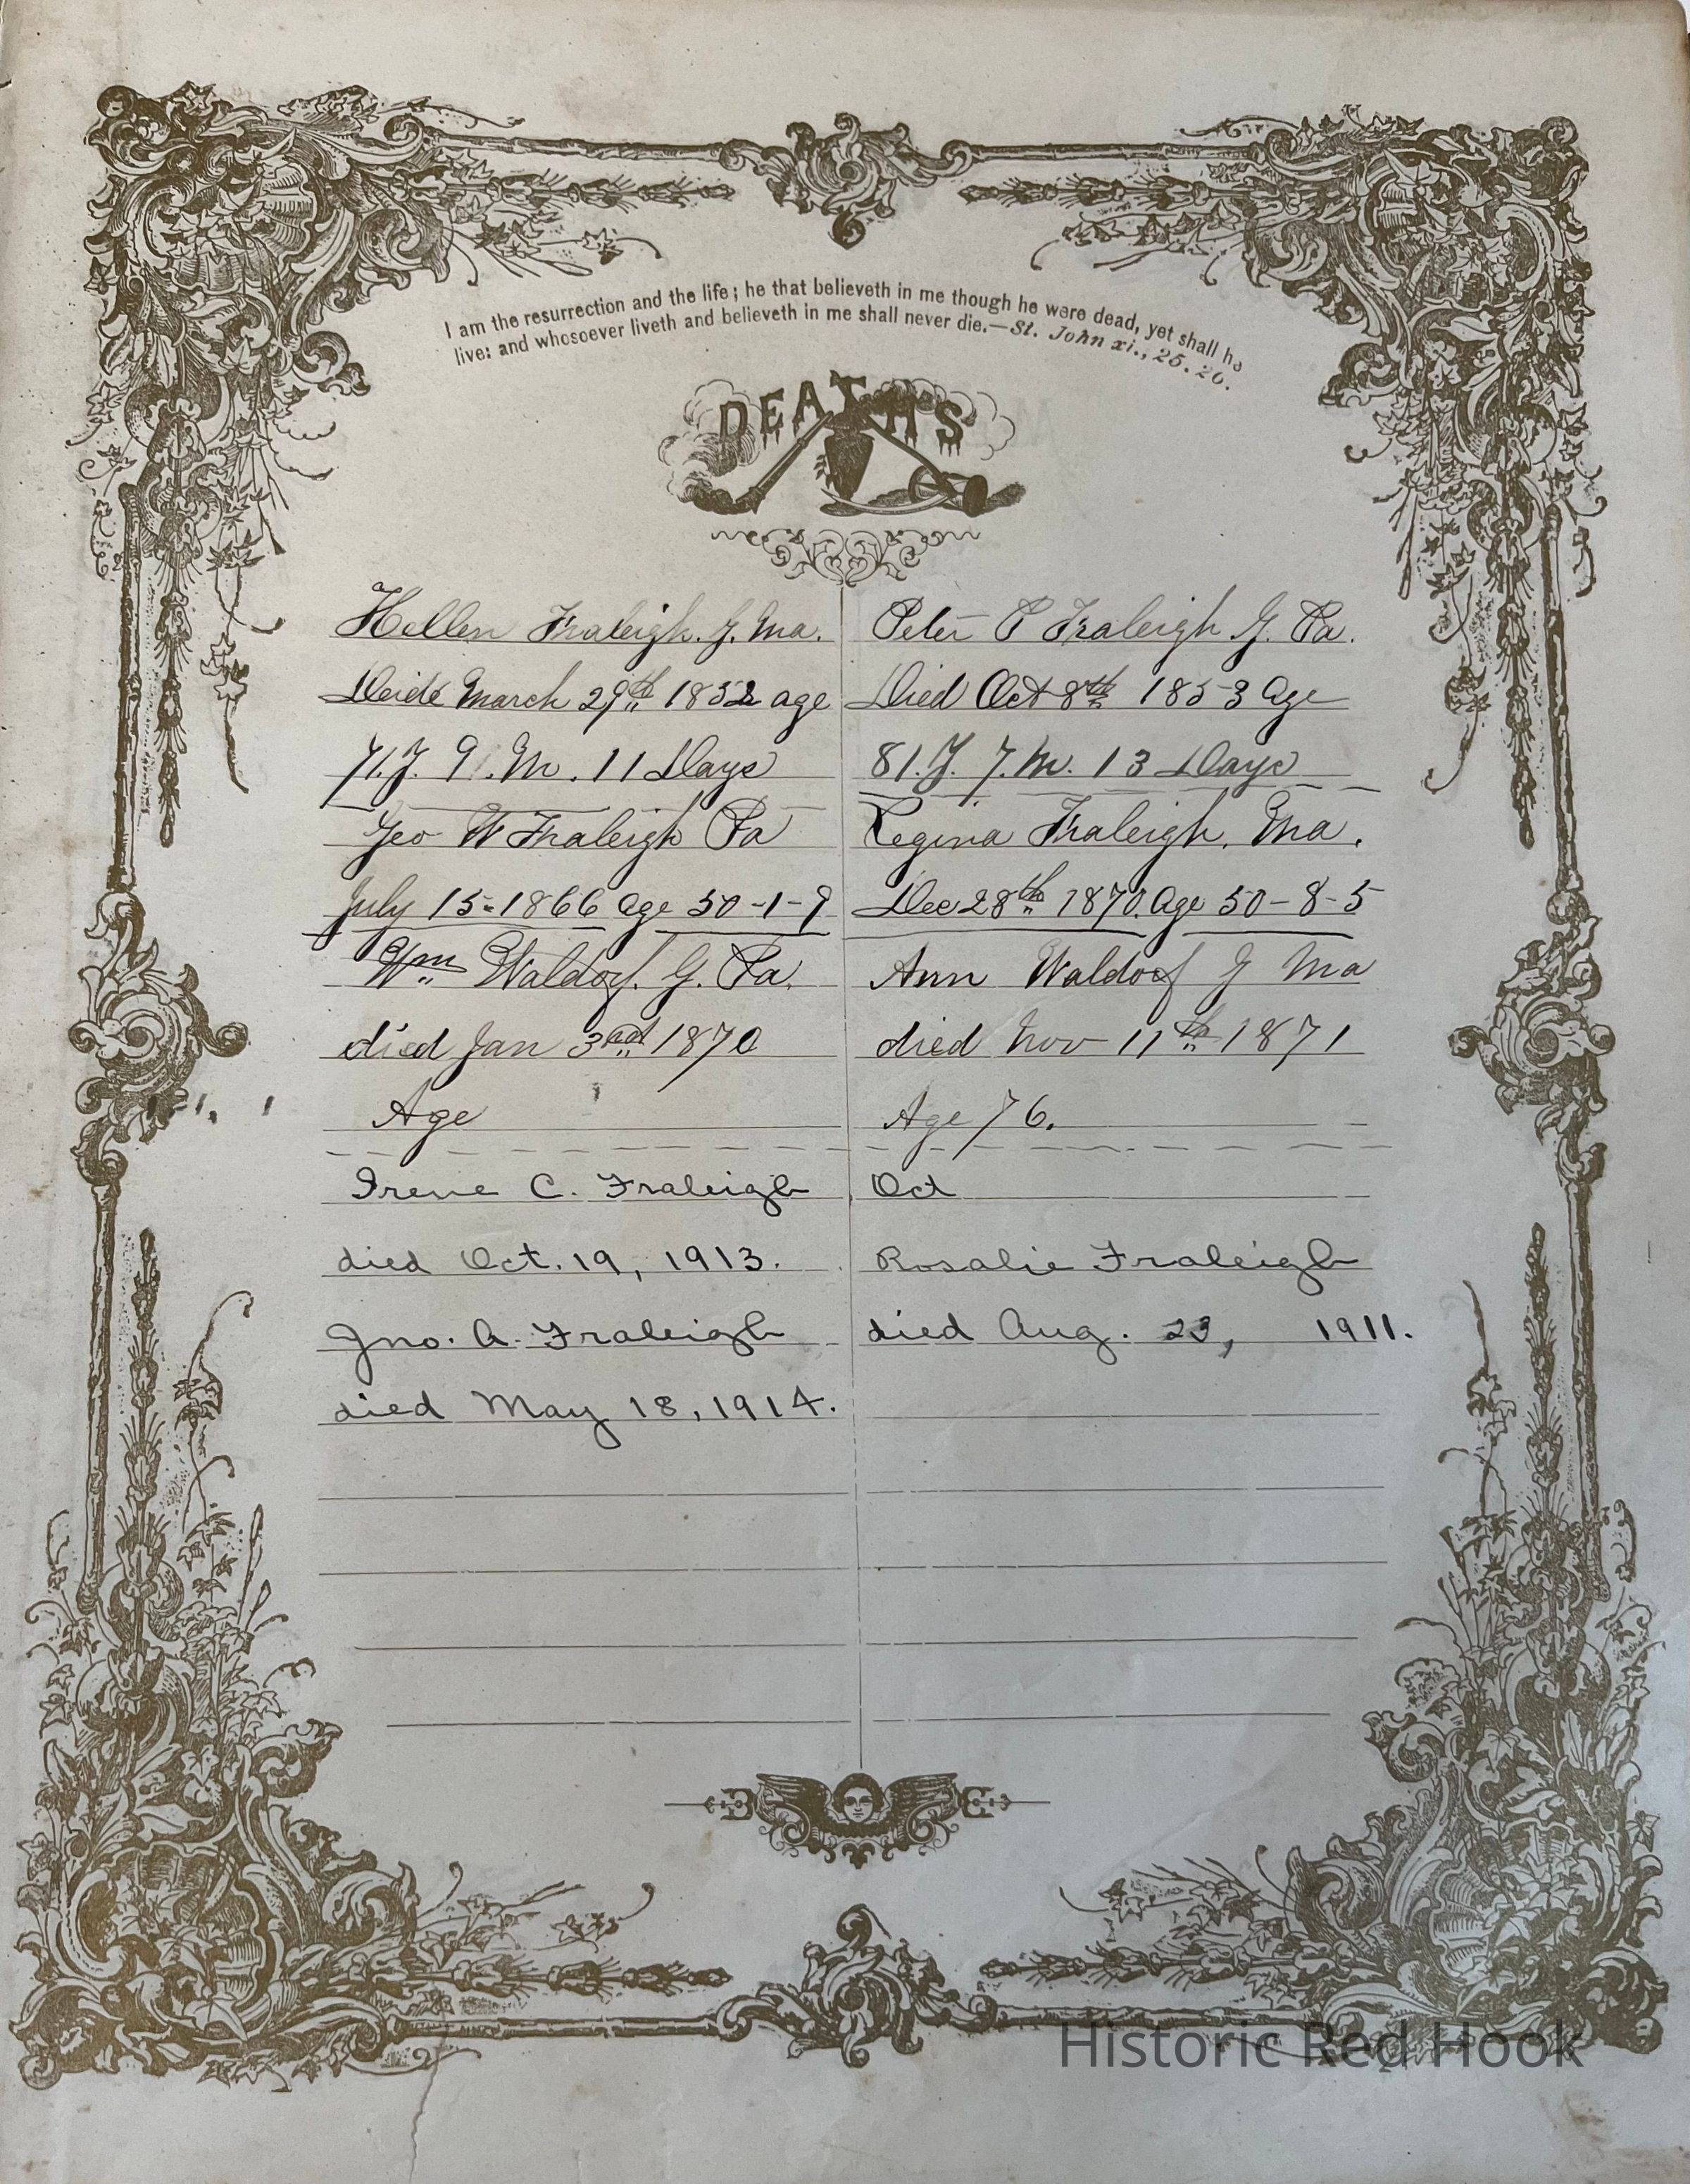 I am the resurrection and the life; he that believeth in me though he were dead, yet shall he
live: and whosoever liveth and believeth in me shall never die.—St. John xi., 25. 26.
DEATHS
Hellen Fraleigh. G. Ma.
Deide March 29th 1852 age
71.Y. 9.M. 11 Days
Geo W Fraleigh Pa
July 15-1866 age 50-1-9
Wm Waldorf. G. Pa.
died Jan 3rd 1870
Age
Irene C. Fraleigh
died Oct. 19, 1913.
Jno. A. Fraleigh
died May 18, 1914.
Peter P Fraleigh G. Pa.
Died Oct 8th 1853 Age
81.Y. 7.M. 13 Days
Regina Fraleigh. Ma.
Dec 28th 1870. Age 50-8-5
Ann Waldorf G Ma
died Nov 11th 1871
Age 76.
Oct
Rosalie Fraleigh
died Aug. 23, 1911.
Historic Red Hook